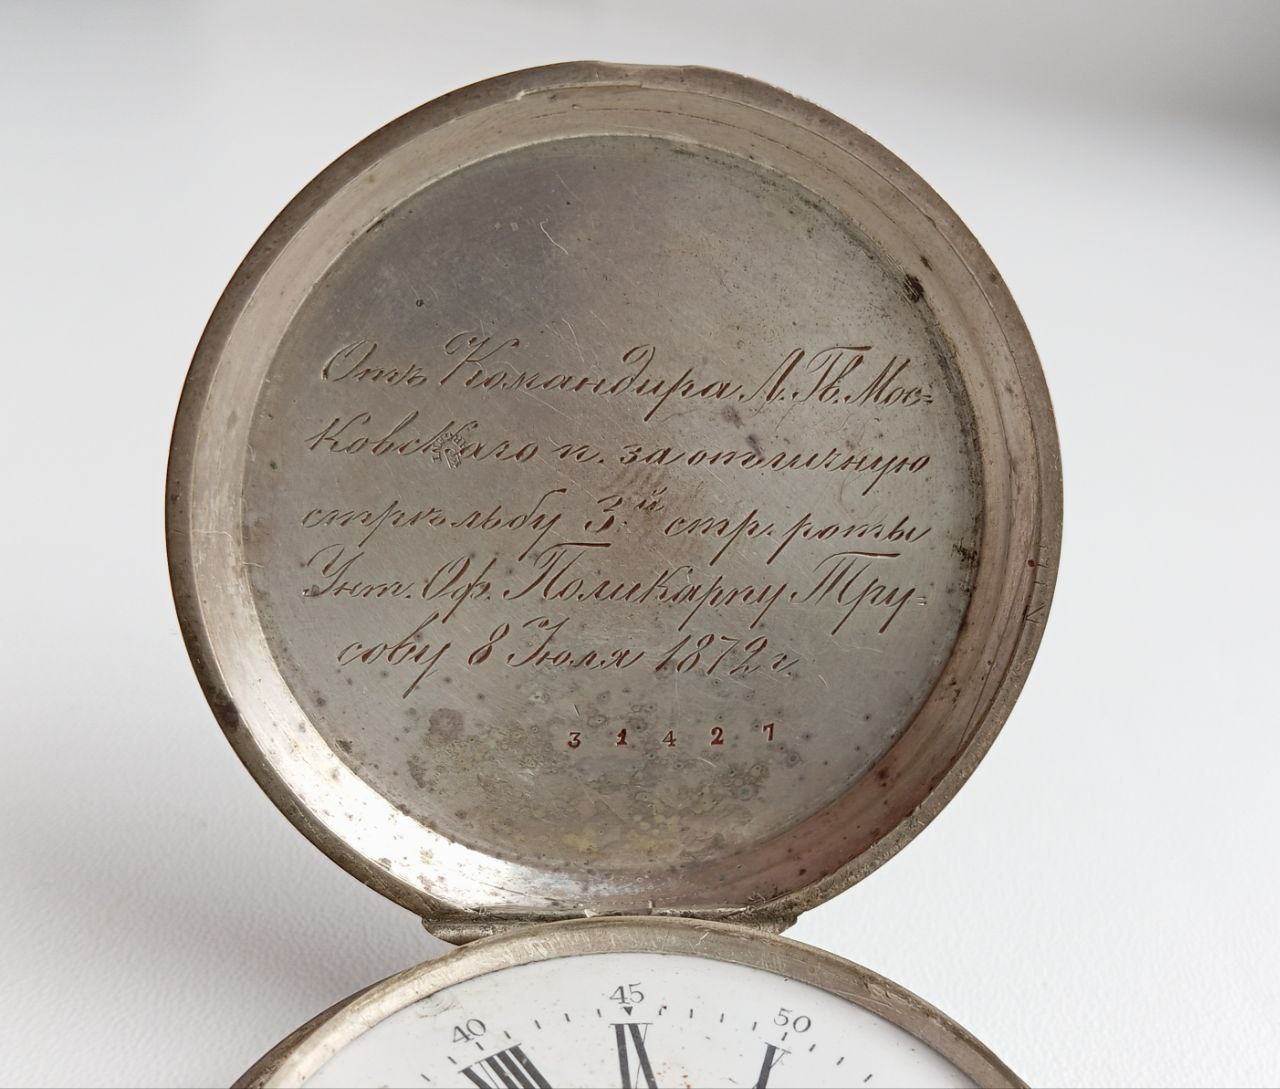 Отъ Командира Л. Гв. Мос-
ковскаго п. за отличную
стрѣльбу 3.й стр. роты
Унт. Оф. Поликарпу Тру-
сову 8 Іюля 1872 г.
31427
40 45 50
VIII IX X